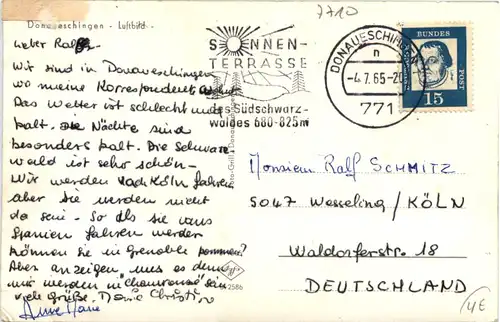 7710
Donaueschingen - Luftbild -
Lieber Ralf
Wir sind in Donaueschingen
wo meine Korrespondent
Das Wetter ist schlecht und
kalt. Die Nächte sind
besonders kalt. Die Schwarz-
wald ist sehr schön -
Wir werden nach Köln fahren
aber sie werden nicht
da sein. So als sie uns
Spanien fahren werden
können sie in Grenoble kommen?
Aber anzeigen uns es denn
wir werden in Chamrousse sein
viele Grüße.
Anne Marie
SONNEN-
TERRASSE
des Südschwarz-
waldes 680-825m
DONAUESCHINGEN
n
-4.7.65-20
771
DEUTSCHE
BUNDES
POST
15
Monsieur Ralf SCHMITZ
5047 Wesseling/KÖLN
Waldorferstr. 18
DEUTSCHLAND
2586
4€